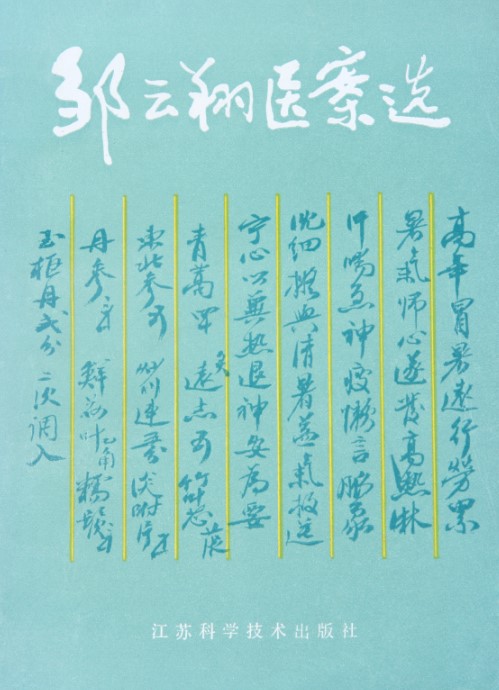 邹云翔医案选
高年冒暑远行劳累
暑气师心遂发高热淋
汗喘急神疲懒言脉象
沈细拟与清暑益气扳逆
宁心以冀热退神安为要
青蒿 炙远志 竹叶芯
东北参 炒川连 淡附片
丹参 鲜荷叶一角
玉枢丹弍分 二次调入
江苏科学技术出版社